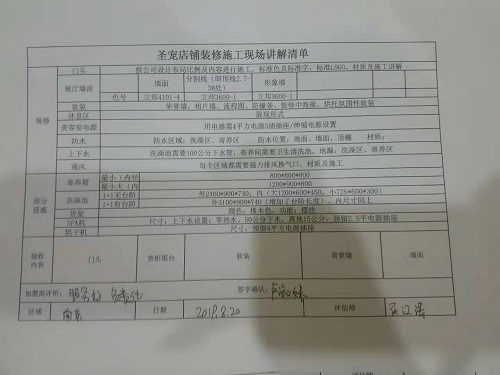 圣宠店铺装修施工现场讲解清单
装修
门头 按公司设计布局比例及内容进行施工，标准色及标准字，标准LOGO，材质及施工讲解
展厅墙面 墙面 分割线（即顶线2.7-3M处） 形象墙
色号 立邦4101-4 立邦3600-1 立邦3600-1
软装 荣誉墙、相片墙、流程图、防撞条、装修中海报、烘托氛围性软装
休息区 展厅形式
美容室电源 用电器需4平方电源5插插座/伸缩电源设置
防水 防水区域：洗澡区、寄养区 防水位置：地面、墙面、顶棚 材质：
上下水 洗澡池需要100公分下水管，寄养间需要卫生清洗池，地漏：洗澡区、寄养区
通风 每个区域都需要强力排风换气口，材质及施工
部分设施
寄养箱 最小（内径 800*800*800
最大（内 1200*900*800
洗澡池 1+1无台阶 外2400*900*740，内（大1200*600*450，小725*600*300）
1+1有台阶 外3100*900*740（增加了台阶长度），内尺寸同上
货架 颜色：橡木色；功能：摆挂
SPA机 尺寸：上下水设置：零热水，50公分下水，离地15公分；预留2.5平电源插座
烘干机 尺寸：预留4平方电源插座
验收内容 门头 货柜展台 软装 背景墙 墙面
加盟商评价： 服务好 签字确认：
区域 日期 2019.8.20 评估师